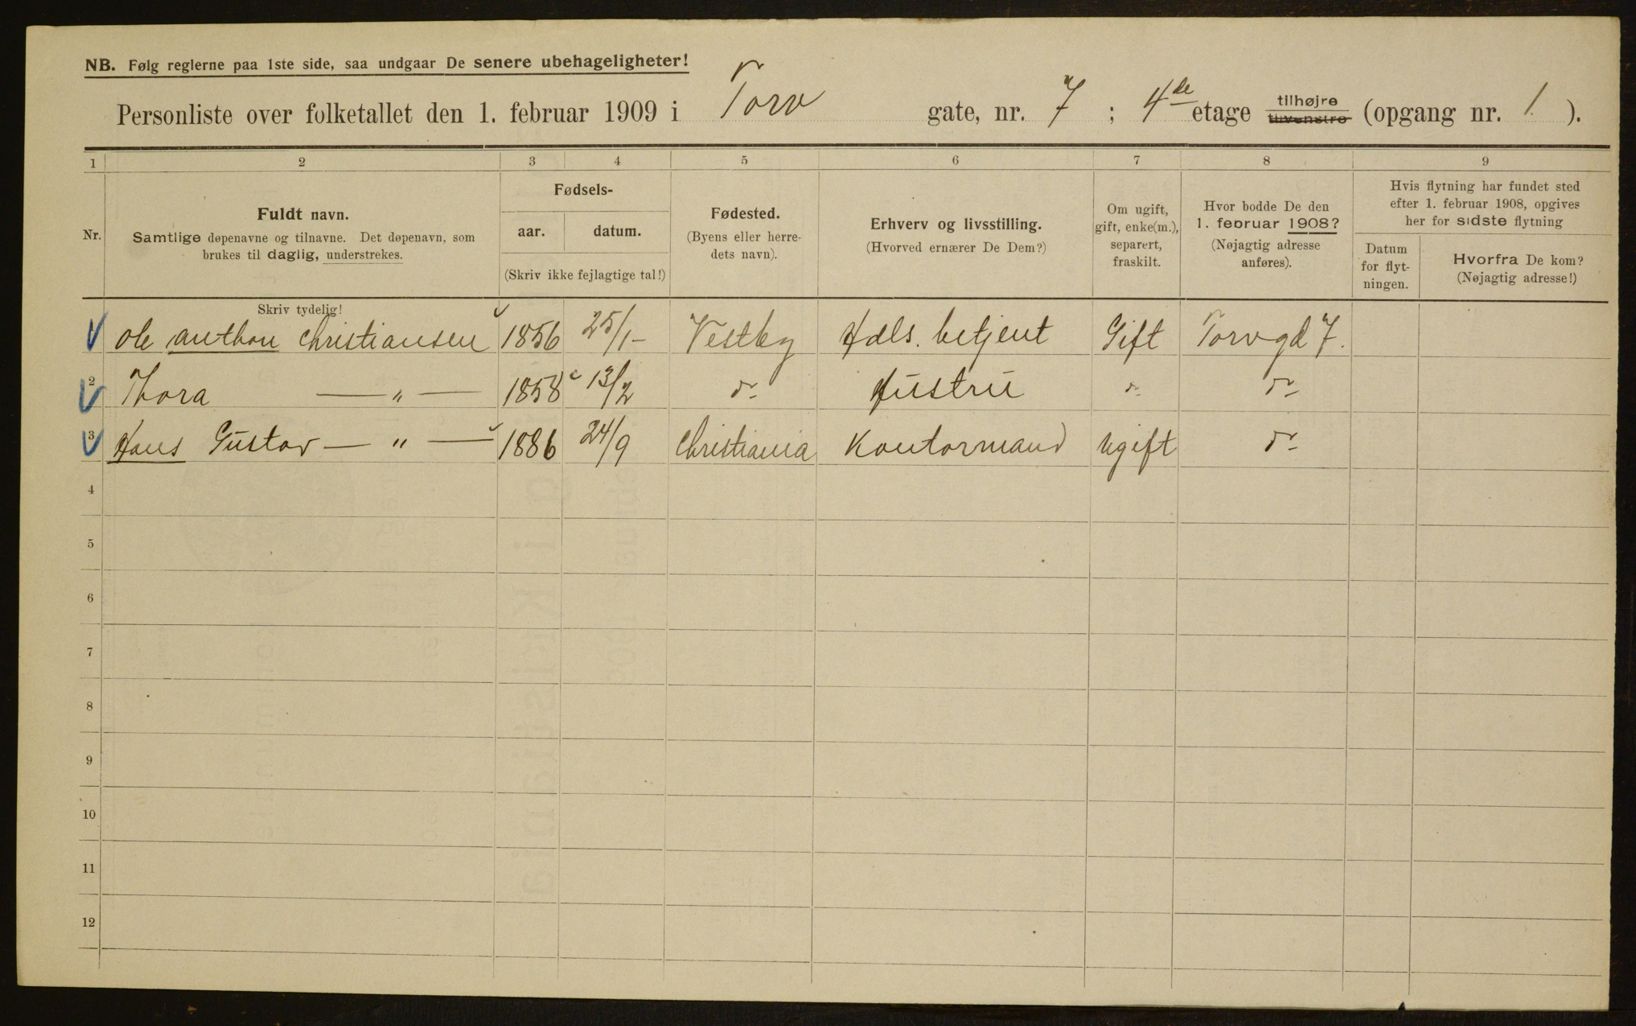 NB. Følg reglerne paa 1ste side, saa undgaar De senere ubehageligheter!
Personliste over folketallet den 1. februar 1909 i Torv gate, nr. 7 ; 4de etage tilhøjre tilvenstre (opgang nr. 1 ).
1 2 3 4 5 6 7 8 9
Nr.
Fuldt navn.
Samtlige døpenavne og tilnavne. Det døpenavn, som
brukes til daglig, understrekes.
Fødsels-
aar. datum.
(Skriv ikke fejlagtige tal!)
Fødested.
(Byens eller herre-
dets navn).
Erhverv og livsstilling.
(Hvorved ernærer De Dem?)
Om ugift,
gift, enke(m.),
separert,
fraskilt.
Hvor bodde De den
1. februar 1908?
(Nøjagtig adresse
anføres).
Hvis flytning har fundet sted
efter 1. februar 1908, opgives
her for sidste flytning
Datum
for flyt-
ningen.
Hvorfra De kom?
(Nøjagtig adresse!)
Skriv tydelig!
Ole Anthon Christiansen 1856 25/1- Vestby Hdls. betjent Gift Torvgd 7.
2 Thora — „ — 1858 13/2 do Hustru do do
3 Hans Gustav — „ — 1886 24/9 Christiania Kontormand Ugift do
4
5
6
7
8
9
10
11
12